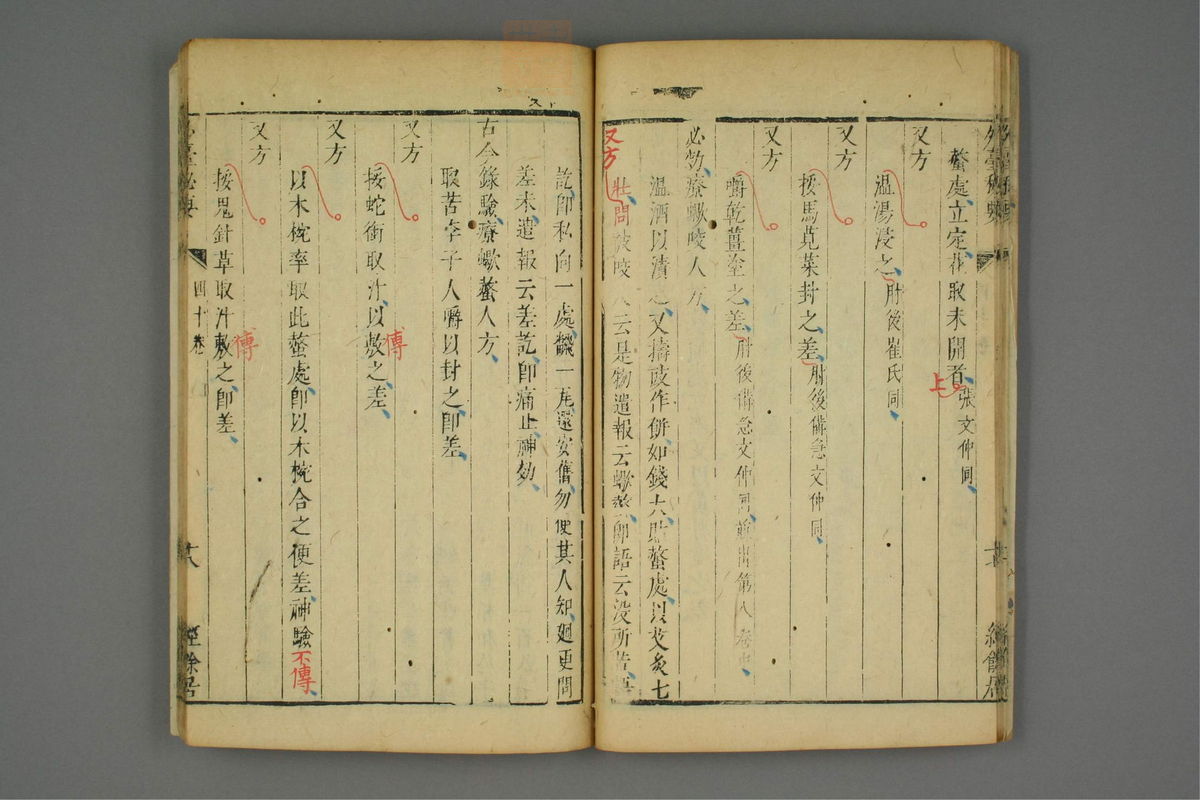 螫處立定花取未開者張文仲同
上
又方
温湯浸之肘後崔氏同
又方
挼馬莧菜封之差肘後備急文仲同
又方
嚼乾薑塗之差肘後備急文仲同並出第八卷中
必効療蠍咬人方
温酒以漬之又擣豉作餅如錢大貼螫處以艾灸七
又方
壯問咬人云是物遣報云蠍螫即語云沒所苦語
訖即私向一處飜一瓦還安舊勿使其人知廻更問
差未遣報云差訖即痛止神効
古今録驗療蠍螫人方
取苦李子人嚼以封之即差
又方
挼蛇銜取汁以敷之差
傅
又方
以木椀率取此螫處即以木椀合之便差神驗
不傳
又方
挼鬼針草取汁敷之即差
傅
四十卷
經餘居